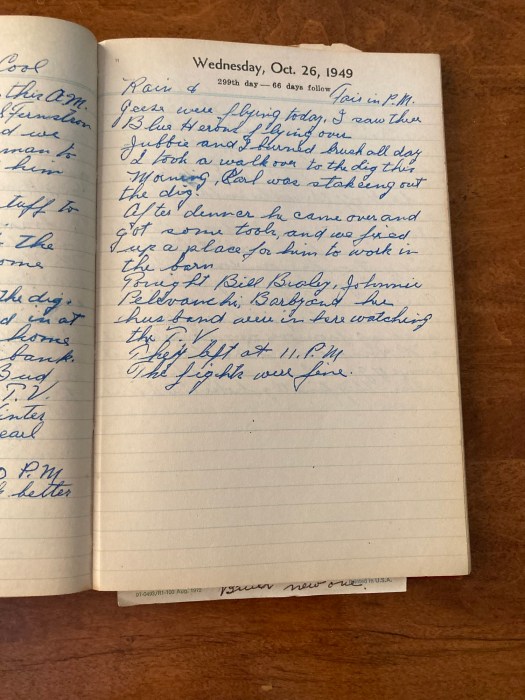 Cool
this A.M.
d we
man to
him
tuff to
the
ome
the dig.
d in at
home
bank.
Bad
T.V.
inter
earl
P.M
better
Wednesday, Oct. 26, 1949
299th day — 66 days follow
Rain & Fair in P.M.
Geese were flying today, I saw three
Blue Herons flying over
Jubbie and I burned brush all day
I took a walk over to the dig this
Morning, Carl was stakeing out
the dig.
After denner he came over and
got some tools, and we fixed
up a place for him to work in
the barn
Tonight Bill Bialey, Johnnie
Pellvanchi, Barby and her
husband were in here watching
the T.V.
They left at 11. P.M
The fights were fine.
new one.